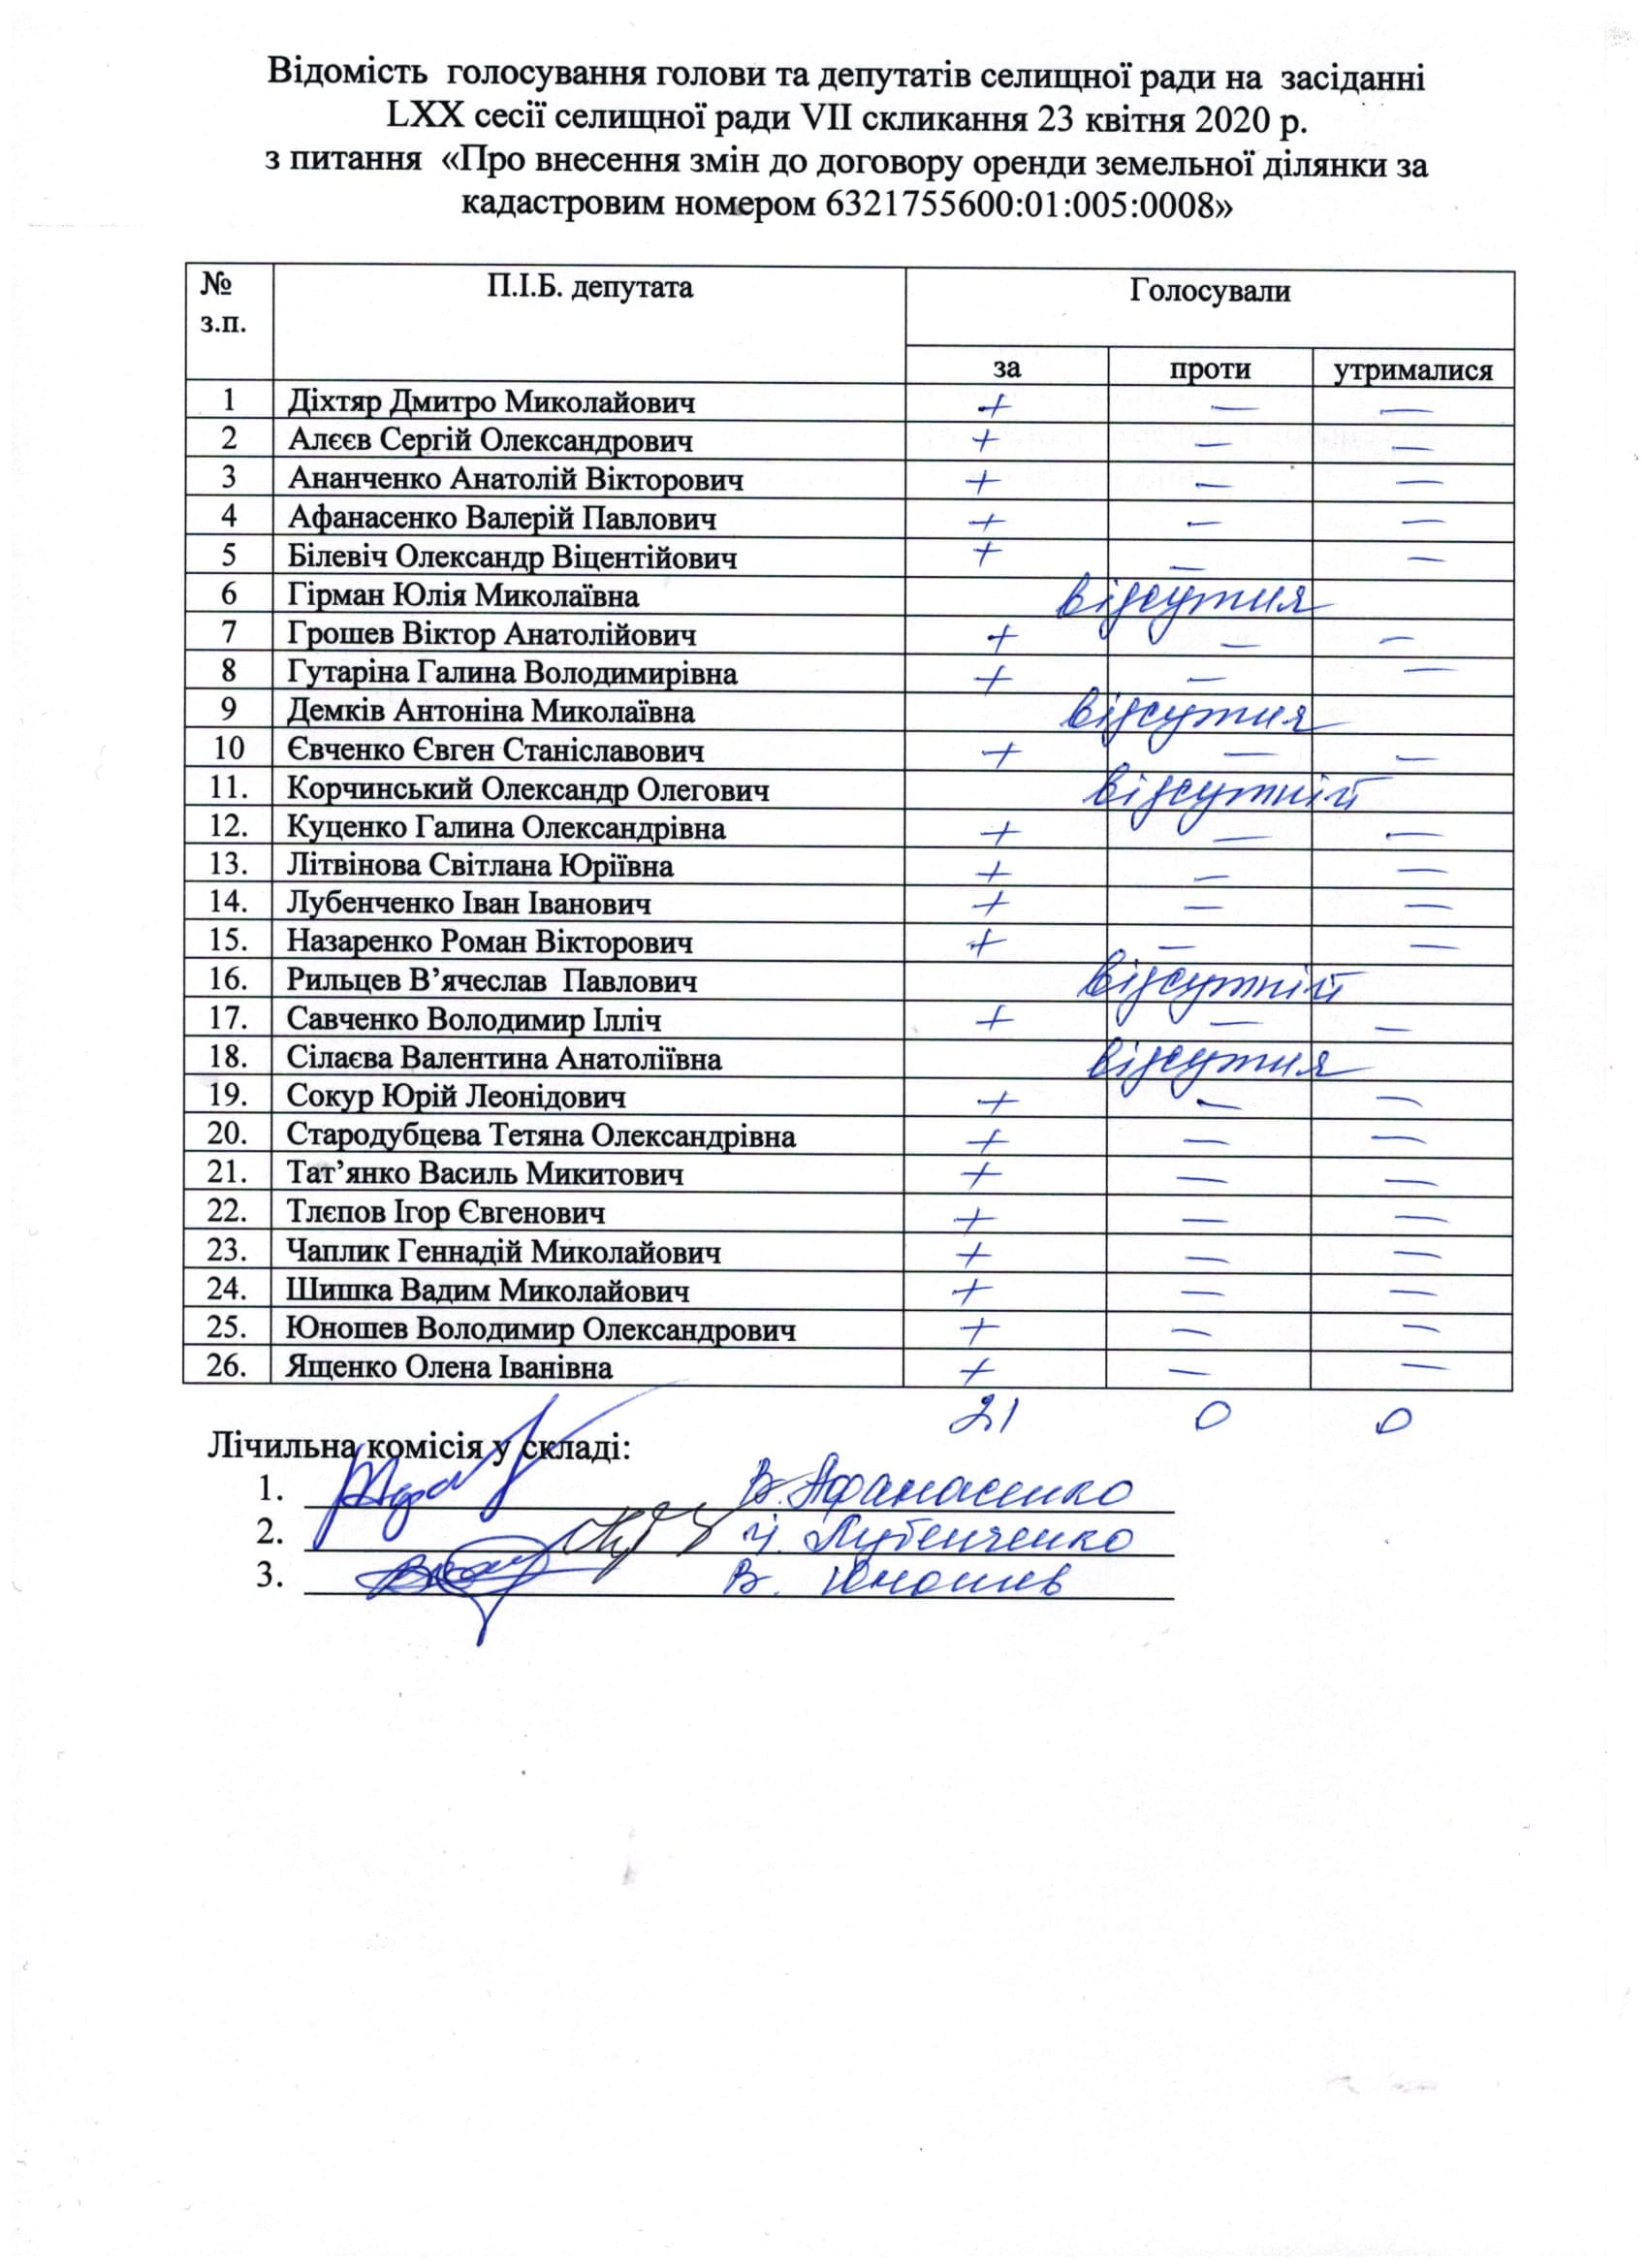 Відомість голосування голови та депутатів селищної ради на засіданні
LXX сесії селищної ради VII скликання 23 квітня 2020 р.
з питання «Про внесення змін до договору оренди земельної ділянки за
кадастровим номером 6321755600:01:005:0008»
№ з.п. П.І.Б. депутата Голосували
за проти утрималися
1 Діхтяр Дмитро Миколайович + — —
2 Алєєв Сергій Олександрович + — —
3 Ананченко Анатолій Вікторович + — —
4 Афанасенко Валерій Павлович + — —
5 Білевіч Олександр Віцентійович + — —
6 Гірман Юлія Миколаївна відсутня
7 Грошев Віктор Анатолійович + — —
8 Гутаріна Галина Володимирівна + — —
9 Демків Антоніна Миколаївна відсутня
10 Євченко Євген Станіславович + — —
11. Корчинський Олександр Олегович відсутній
12. Куценко Галина Олександрівна + — —
13. Літвінова Світлана Юріївна + — —
14. Лубенченко Іван Іванович + — —
15. Назаренко Роман Вікторович + — —
16. Рильцев В’ячеслав Павлович відсутній
17. Савченко Володимир Ілліч + — —
18. Сілаєва Валентина Анатоліївна відсутня
19. Сокур Юрій Леонідович + — —
20. Стародубцева Тетяна Олександрівна + — —
21. Тат’янко Василь Микитович + — —
22. Тлєпов Ігор Євгенович + — —
23. Чаплик Геннадій Миколайович + — —
24. Шишка Вадим Миколайович + — —
25. Юношев Володимир Олександрович + — —
26. Ященко Олена Іванівна + — —
21 0 0
Лічильна комісія у складі:
1. В. Афанасенко
2. І. Лубенченко
3. В. Юношев